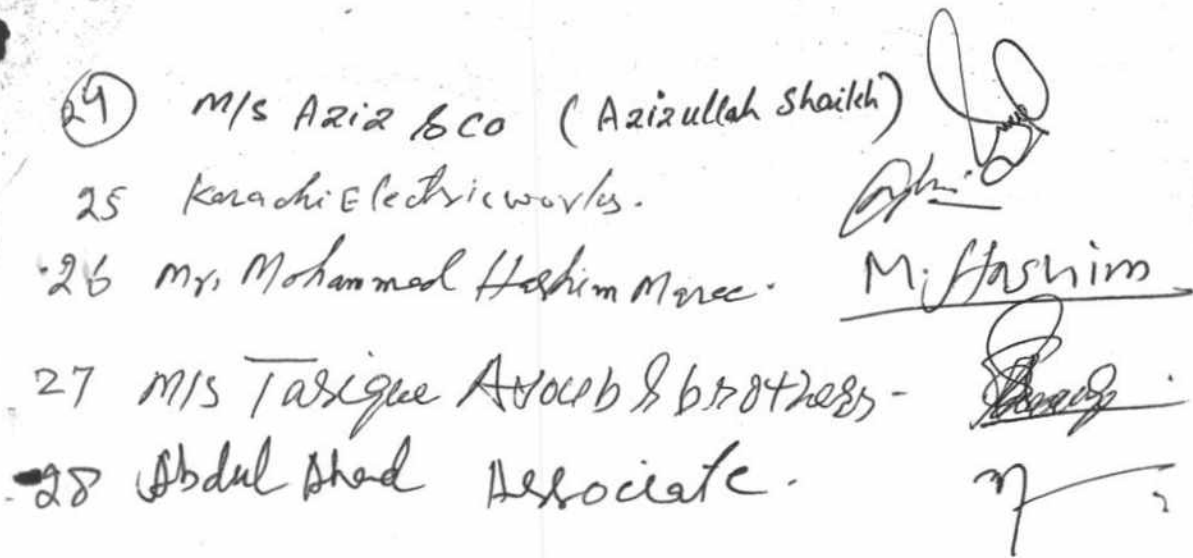 24 M/s Aziz & Co (Azizullah Shaikh)
25 Karachi Electric works.
26 Mr. Mohammed Hashim Maree. M. Hashim
27 M/S Tarique Ayoub & brothers -
28 Abdul Ahad Associate.